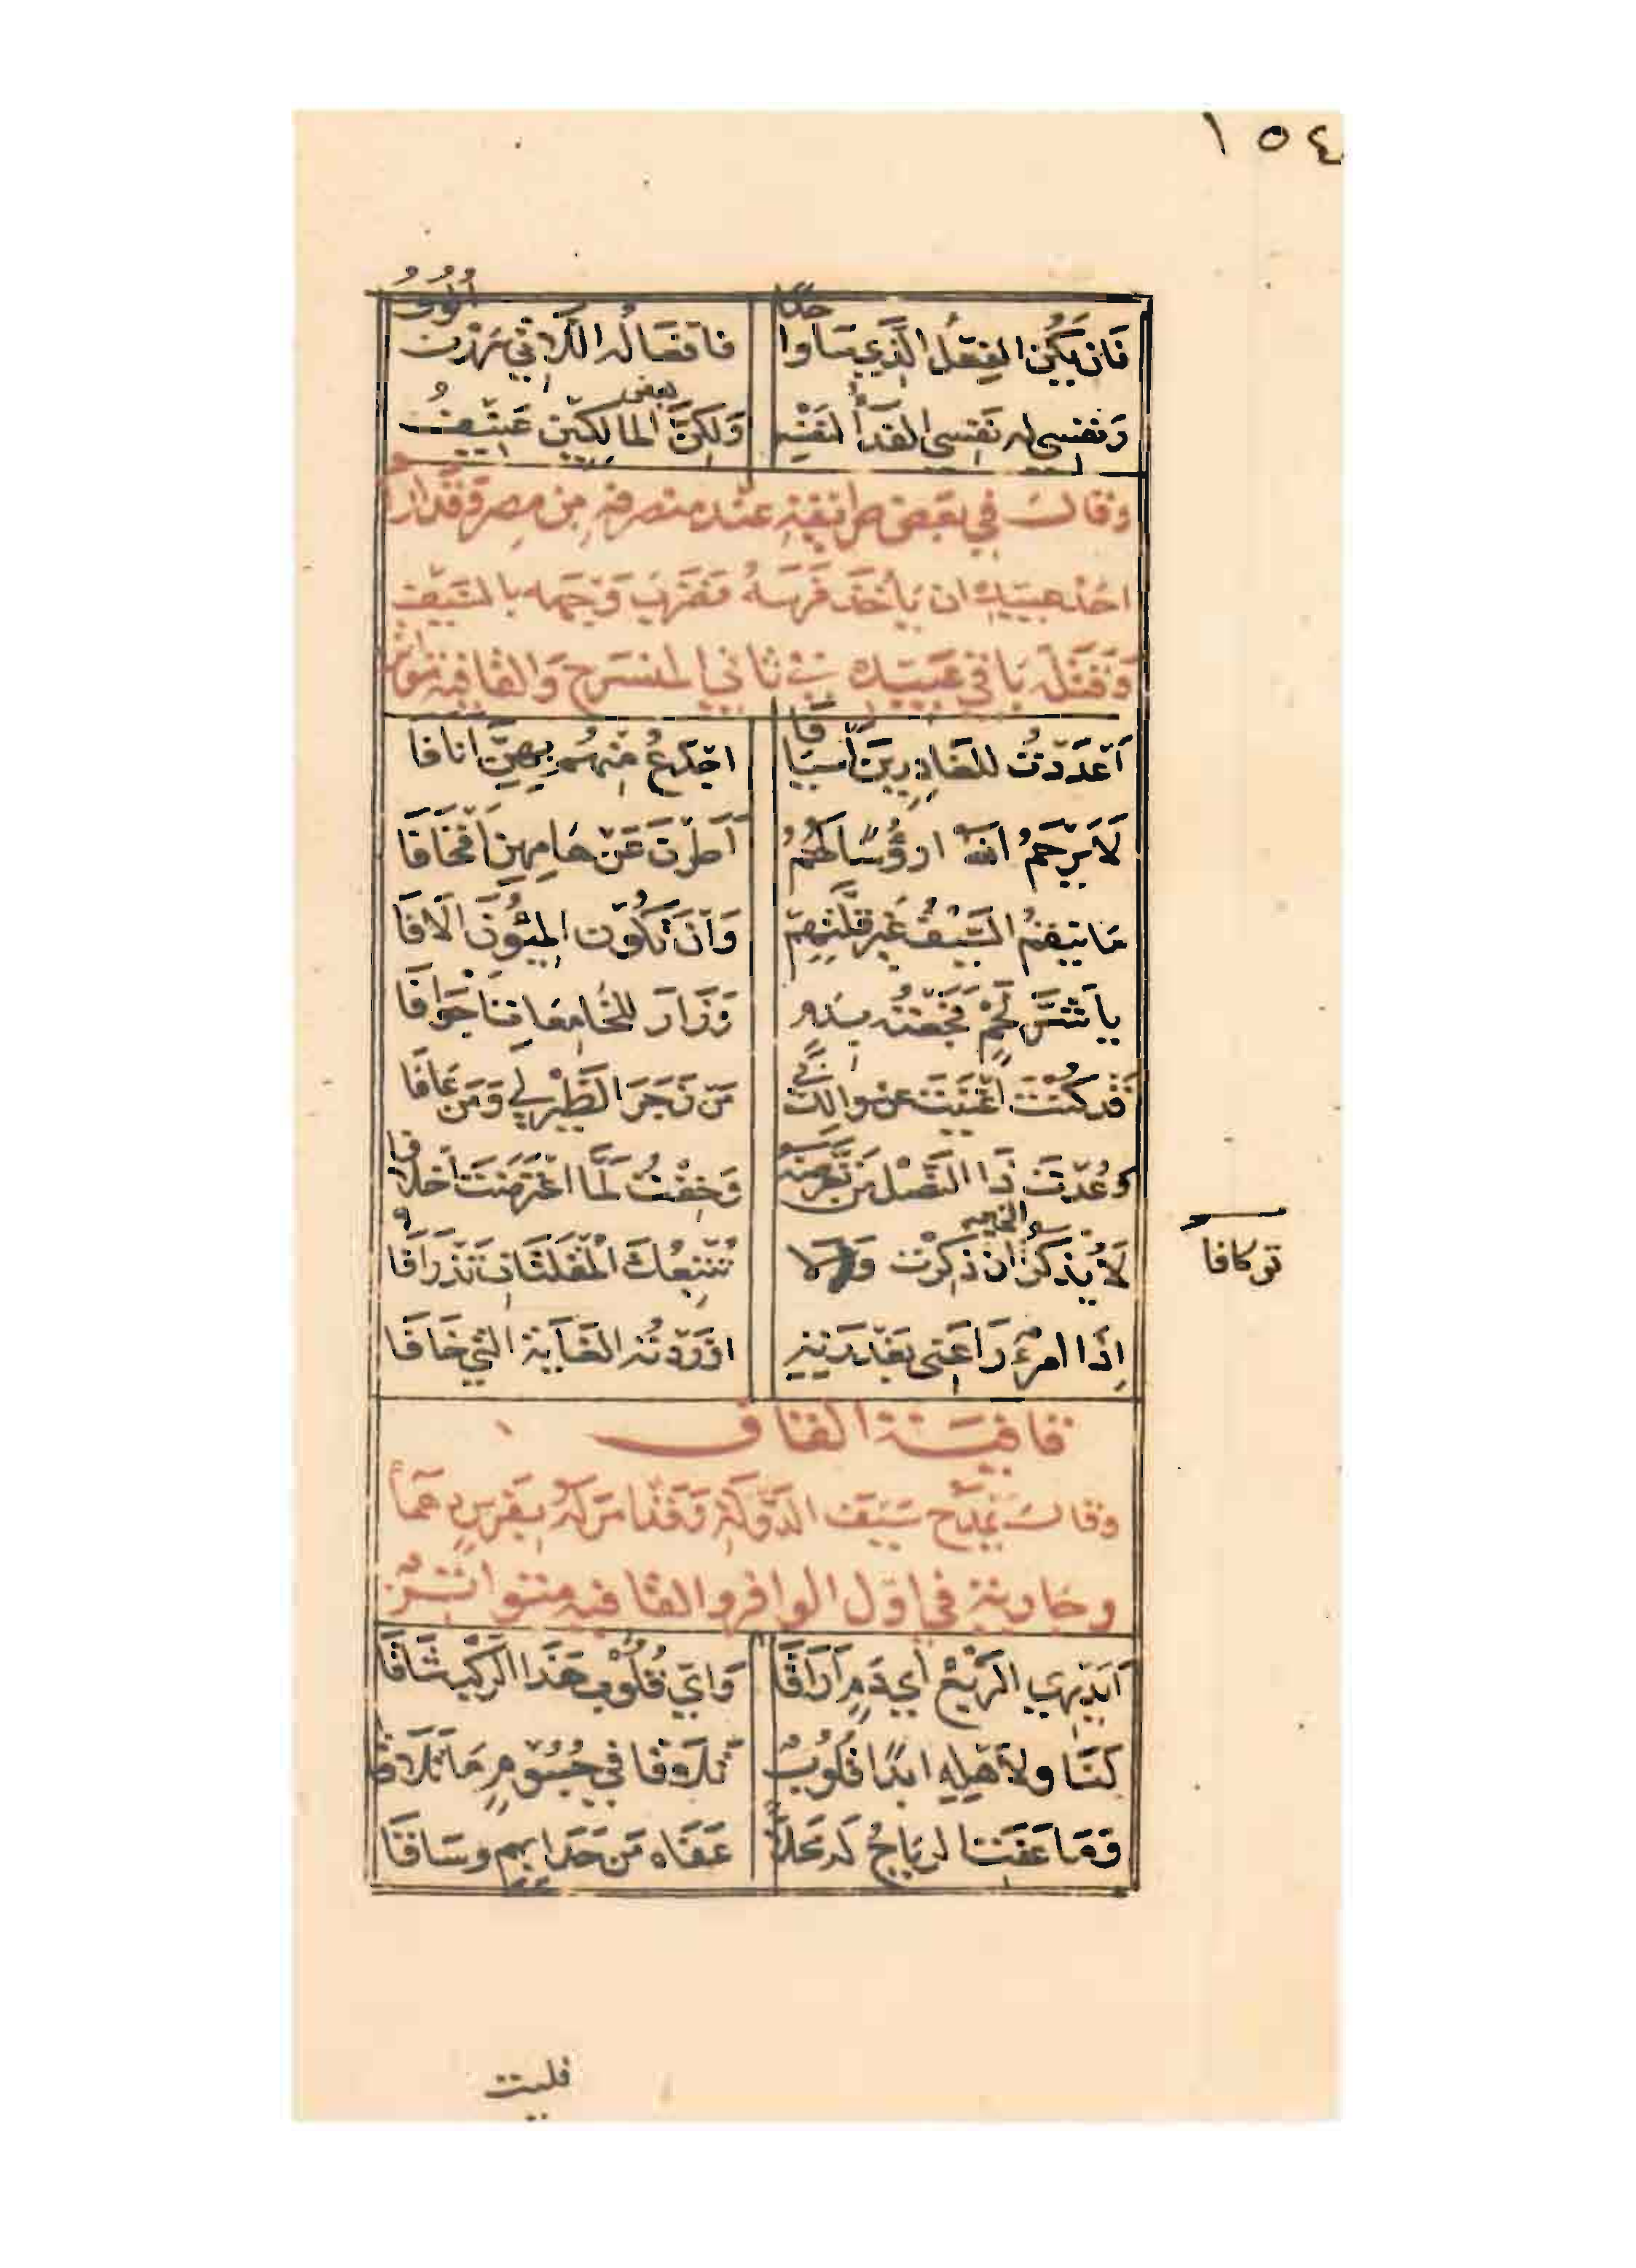 ١٥٤
فَاِنْ يَكُنِ الفِعْلُ الَّذِي سَاءَ وَاحِدًا فَاَفْعَالُه اللَّاتِي سَرَرْنَ اُلُوْفُ
وَنَفْسِي لَه نَفْسِي الفِدَآءُ لِنَفْسِهِ وَلَكِنَّ بَعْضَ المالِكِيْنَ عَنِيْفُ
وَقَالَ فِي بَعْضِ طَرِيْقِهِ عِنْدَ مُنْصَرَفِهِ مِنْ مِصْرَ وَقَدْ اَرَادَ
اَحَدُ عَبِيْدِهِ ان يَأْخُذَ فَرَسَهُ فَضَرَبَ وَجْهَه بِالسَّيْفِ
وَقَتَلَه بَاقِي عَبِيْدِه فِي ثَانِي المُنْسَرِح وَالقَافِيه مُتَوَاتِر
اَعْدَدْتُ لِلغَادِرِيْنَ اَسْيَافَا اَجْدَعُ مِنْهُمْ بِهِنَّ انَافَا
لَا يَرْحَمُ اللهُ ارْؤُسًا لَهُمُ اَطَرْنَ عَنْ هَامِهِنَّ اَقْحَافَا
مَا يَنْقِمُ السَّيْفُ غَيْرَ قِلَّتِهِمْ وَاَنْ تَكُوْنَ المِئُوْنَ الَافَا
يا شَرَّ لَحْمٍ فَجَعْتُه بِدَمٍ وَزَارَ لِلخَامِعَاتِ اَجْوَافَا
قَدْ كُنْتَ اُغْنِيْتَ عَنْ سُوالِكَ بِي مَنْ زَجَرَ الطَّيْرَ لِي وَمَن عَافَا
وَعَدْتُ ذَا النَّصْلَ مَنْ تَعَرَّضَه وَخِفْتُ لَمَّا اعْتَرَضْتَ اخْلَافَا
لَا يُذْكَرُ الخَيْرُ ان ذُكِرْتَ وَلَا تُتْبِعُكَ المُقْلَتَانِ تَذْرَافَا
توكافا
اِذَا امْرُءٌ رَاعَنِي بِغَدْرَتِهِ اوْرَدْتُه الغَايَةَ الَّتِي خَافَا
قَافِيَة القَاف
وَقَالَ يَمْدَح سَيْفَ الدَّوْلَة وَقَدْ امَرَ لَهُ بِفَرَسٍ دَهْمَاءَ
وجَارِيَةٍ فِي اوّل الوافِر والقافيه متواتر
اَيَدْرِي الرَّبْعُ اَيَّ دَمٍ اَرَاقَا وَاَيَّ قُلُوْبِ هَذَا الرَّكْبِ شَاقَا
لَنَا ولِاَهْلِهِ ابَدًا قُلُوْبٌ تَلَاقَا فِي جُسُوْمٍ مَا تَلَاقَا
وَمَا عَفَتِ الرِيَاحُ لَه مَحَلًّا عَفَاه مَنْ حَدَا بِهِم وسَاقَا
فليت